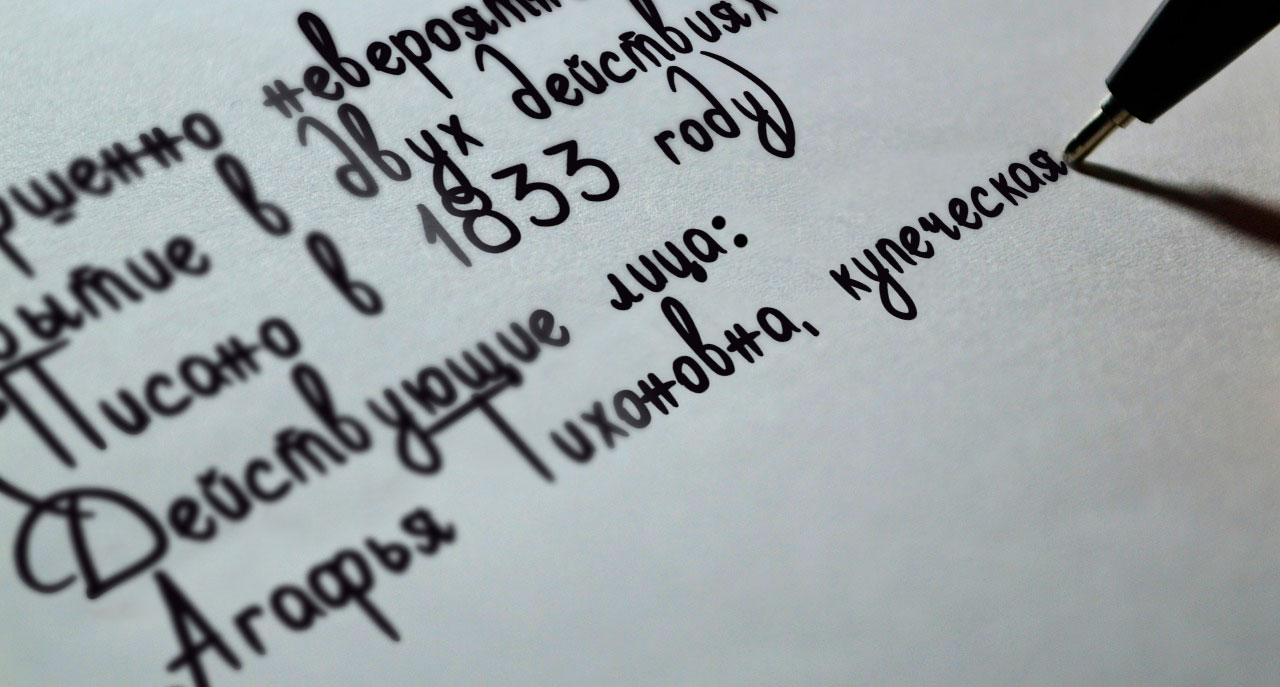 ршенно невероятн
ытие в двух действиях
Писано в 1833 году)
Действующие лица:
Агафья Тихоновна, купеческая